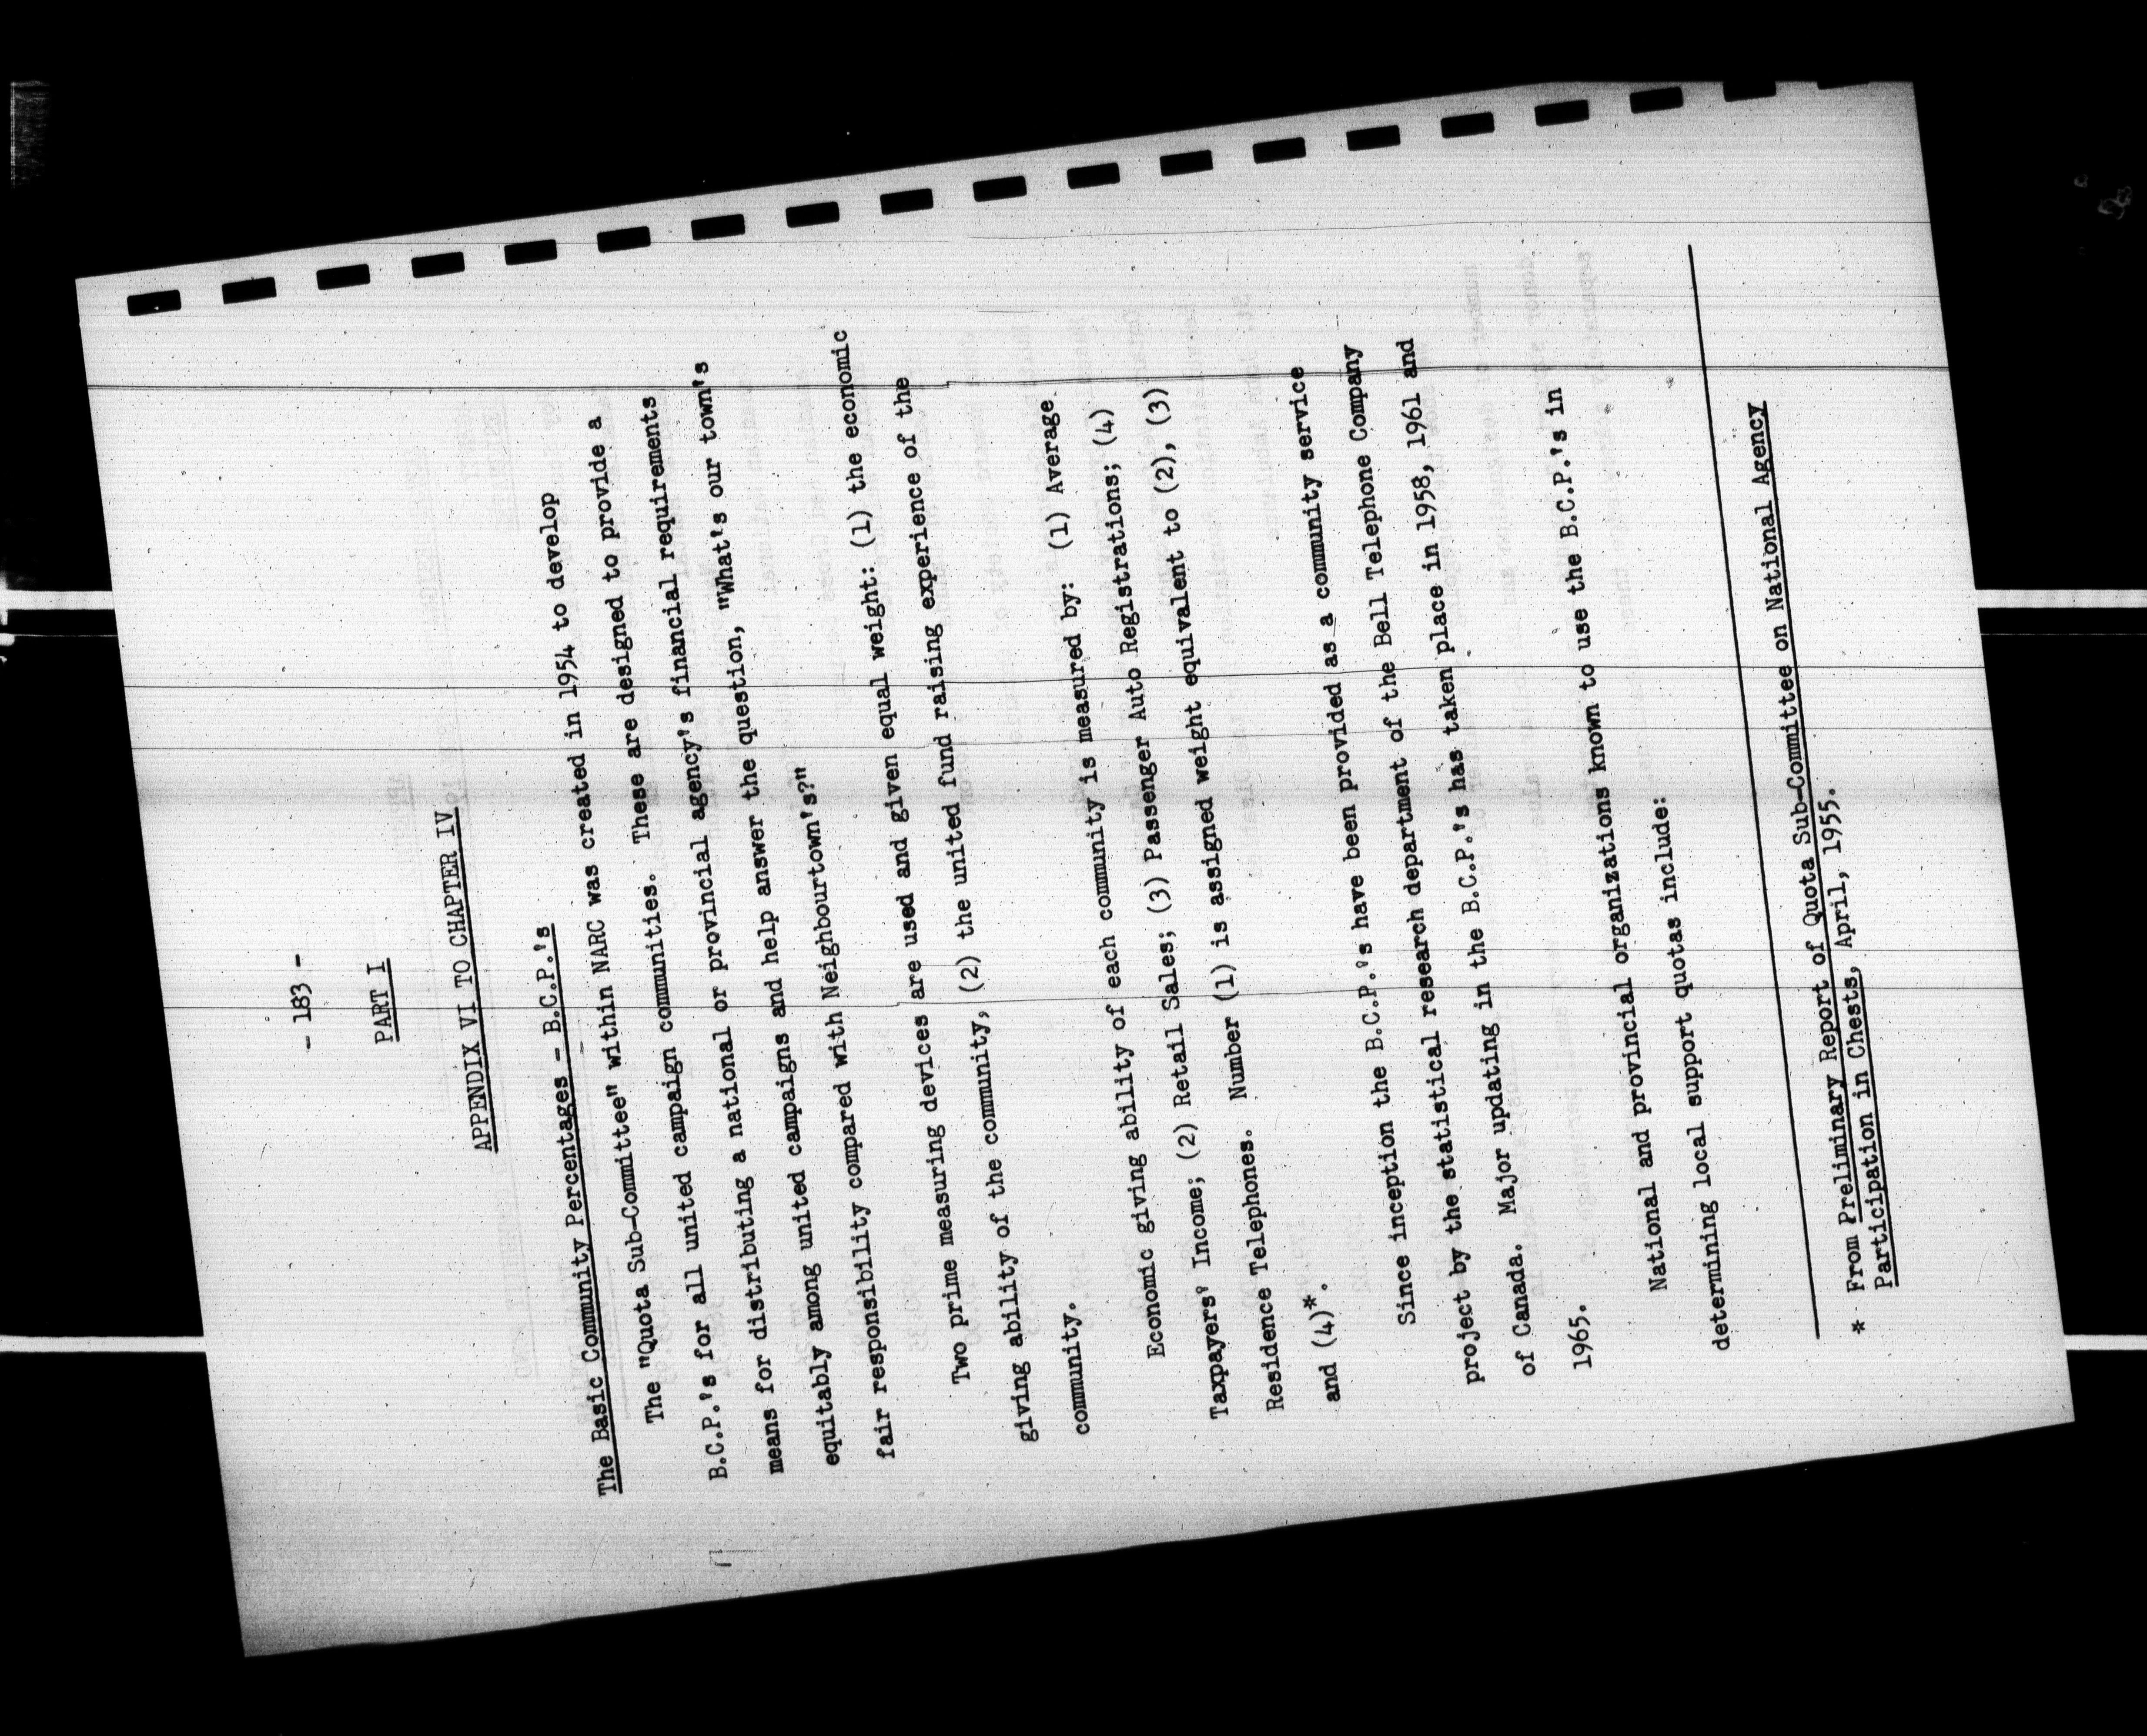 - 183 -
PART I
APPENDIX VI TO CHAPTER IV
The Basic Community Percentages - B.C.P.'s
The "Quota Sub-Committee" within NARC was created in 1954 to develop
B.C.P.'s for all united campaign communities. These are designed to provide a
means for distributing a national or provincial agency's financial requirements
equitably among united campaigns and help answer the question, "What's our town's
fair responsibility compared with Neighbourtown's?"
Two prime measuring devices are used and given equal weight: (1) the economic
giving ability of the community, (2) the united fund raising experience of the
community.
Economic giving ability of each community is measured by: (1) Average
Taxpayers' Income; (2) Retail Sales; (3) Passenger Auto Registrations; (4)
Residence Telephones. Number (1) is assigned weight equivalent to (2), (3)
and (4)*.
Since inception the B.C.P.'s have been provided as a community service
project by the statistical research department of the Bell Telephone Company
of Canada. Major updating in the B.C.P.'s has taken place in 1958, 1961 and
1965.
National and provincial organizations known to use the B.C.P.'s in
determining local support quotas include:
* From Preliminary Report of Quota Sub-Committee on National Agency
Participation in Chests, April, 1955.